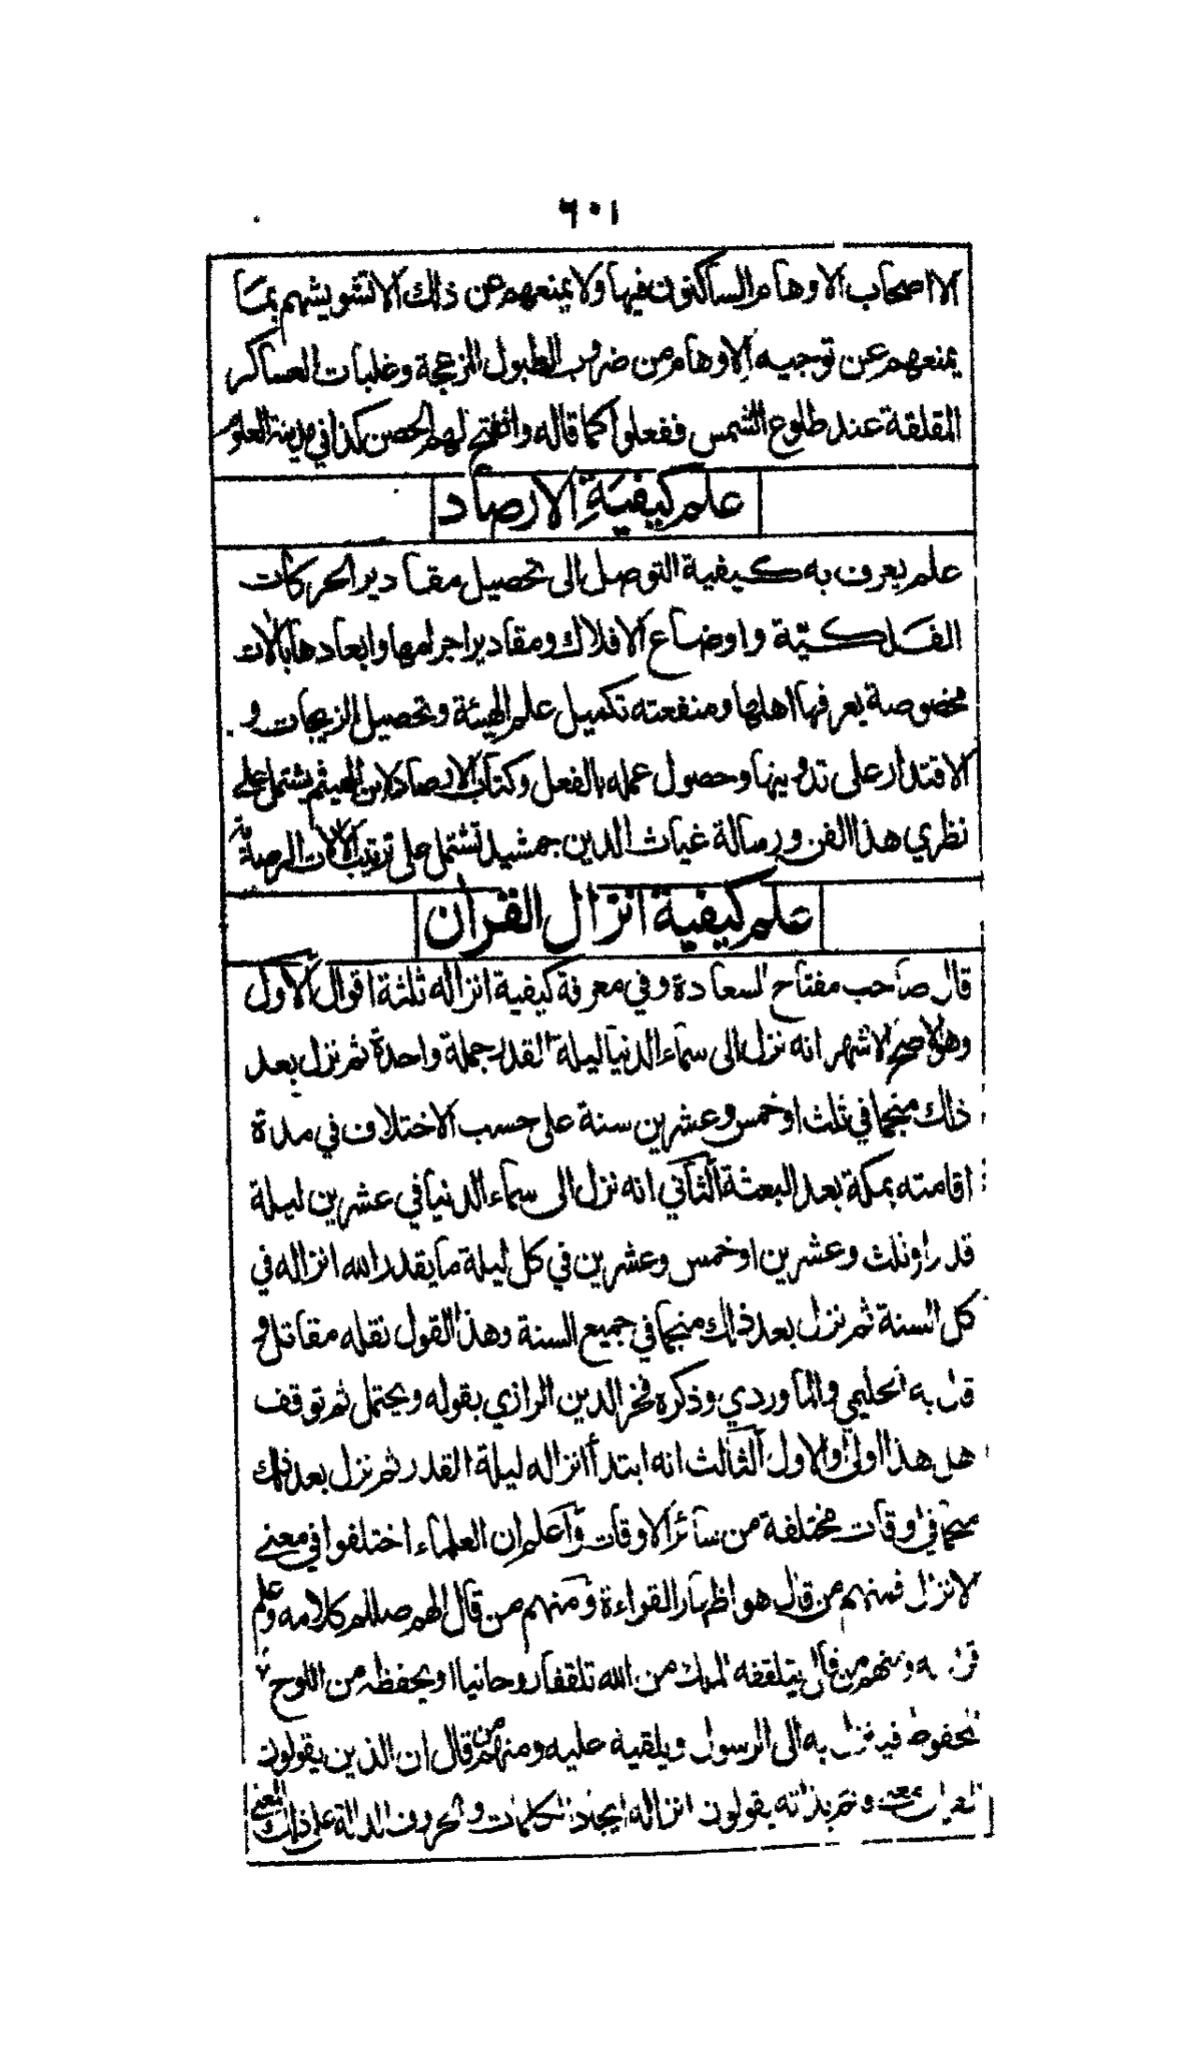 ٦٠١
الا اصحاب الاوهام الساكنون فيها ولا يمنعهم عن ذلك الا تشويشهم بما
يمنعهم عن توجيه الاوهام من ضرب الطبول المزعجة وغلبات العساكر
المقلقة عند طلوع الشمس ففعلوا كما قاله وانفتح لهم الحصن كذا في مدينة العلوم
علم كيفية الارصاد
علم يعرف به كيفية التوصل الى تحصيل مقادير الحركات
الفلكية واوضاع الافلاك ومقادير اجرامها وابعادها بآلات
مخصوصة يعرفها اهلها ومنفعته تكميل علم الهيئة وتحصيل الزيجات و
الاقتدار على تدوينها وحصول عمله بالفعل وكتاب الارصاد لابن الهيثم يشتمل على
نظري هذا الفن ورسالة غياث الدين جمشيد تشتمل على ترتيب الآلات الرصدية
علم كيفية انزال القران
قال صاحب مفتاح السعادة وفي معرفة كيفية انزاله ثلثة اقوال الاول
وهو الاصح الاشهر انه نزل الى سماء الدنيا ليلة القدر جملة واحدة ثم نزل بعد
ذلك منجما في ثلث او خمس وعشرين سنة على حسب الاختلاف في مدة
اقامته بمكة بعد البعثة الثاني انه نزل الى سماء الدنيا في عشرين ليلة
قدر او ثلث وعشرين او خمس وعشرين في كل ليلة ما يقدر الله انزاله في
كل السنة ثم نزل بعد ذلك منجما في جميع السنة وهذا القول نقله مقاتل و
قال به الحليمي والماوردي وذكره فخر الدين الرازي بقوله ويحتمل ثم توقف
هل هذا اولى والاول الثالث انه ابتدأ انزاله ليلة القدر ثم نزل بعد ذلك
منجما في اوقات مختلفة من سائر الاوقات وآعلم ان العلماء اختلفوا في معنى
الانزال فمنهم من قال هو اظهار القراءة ومنهم من قال الهم صللم كلامه وعلم
قراءته ومنهم من قال يتلقفه الملك من الله تلقفا روحانيا او يحفظه من اللوح
المحفوظ فينزل به الى الرسول ويلقيه عليه ومنهم من قال ان الذين يقولون
القران معنى قائم بذاته يقولون انزاله ايجاد الكلمات والحروف الدالة على ذلك المعنى